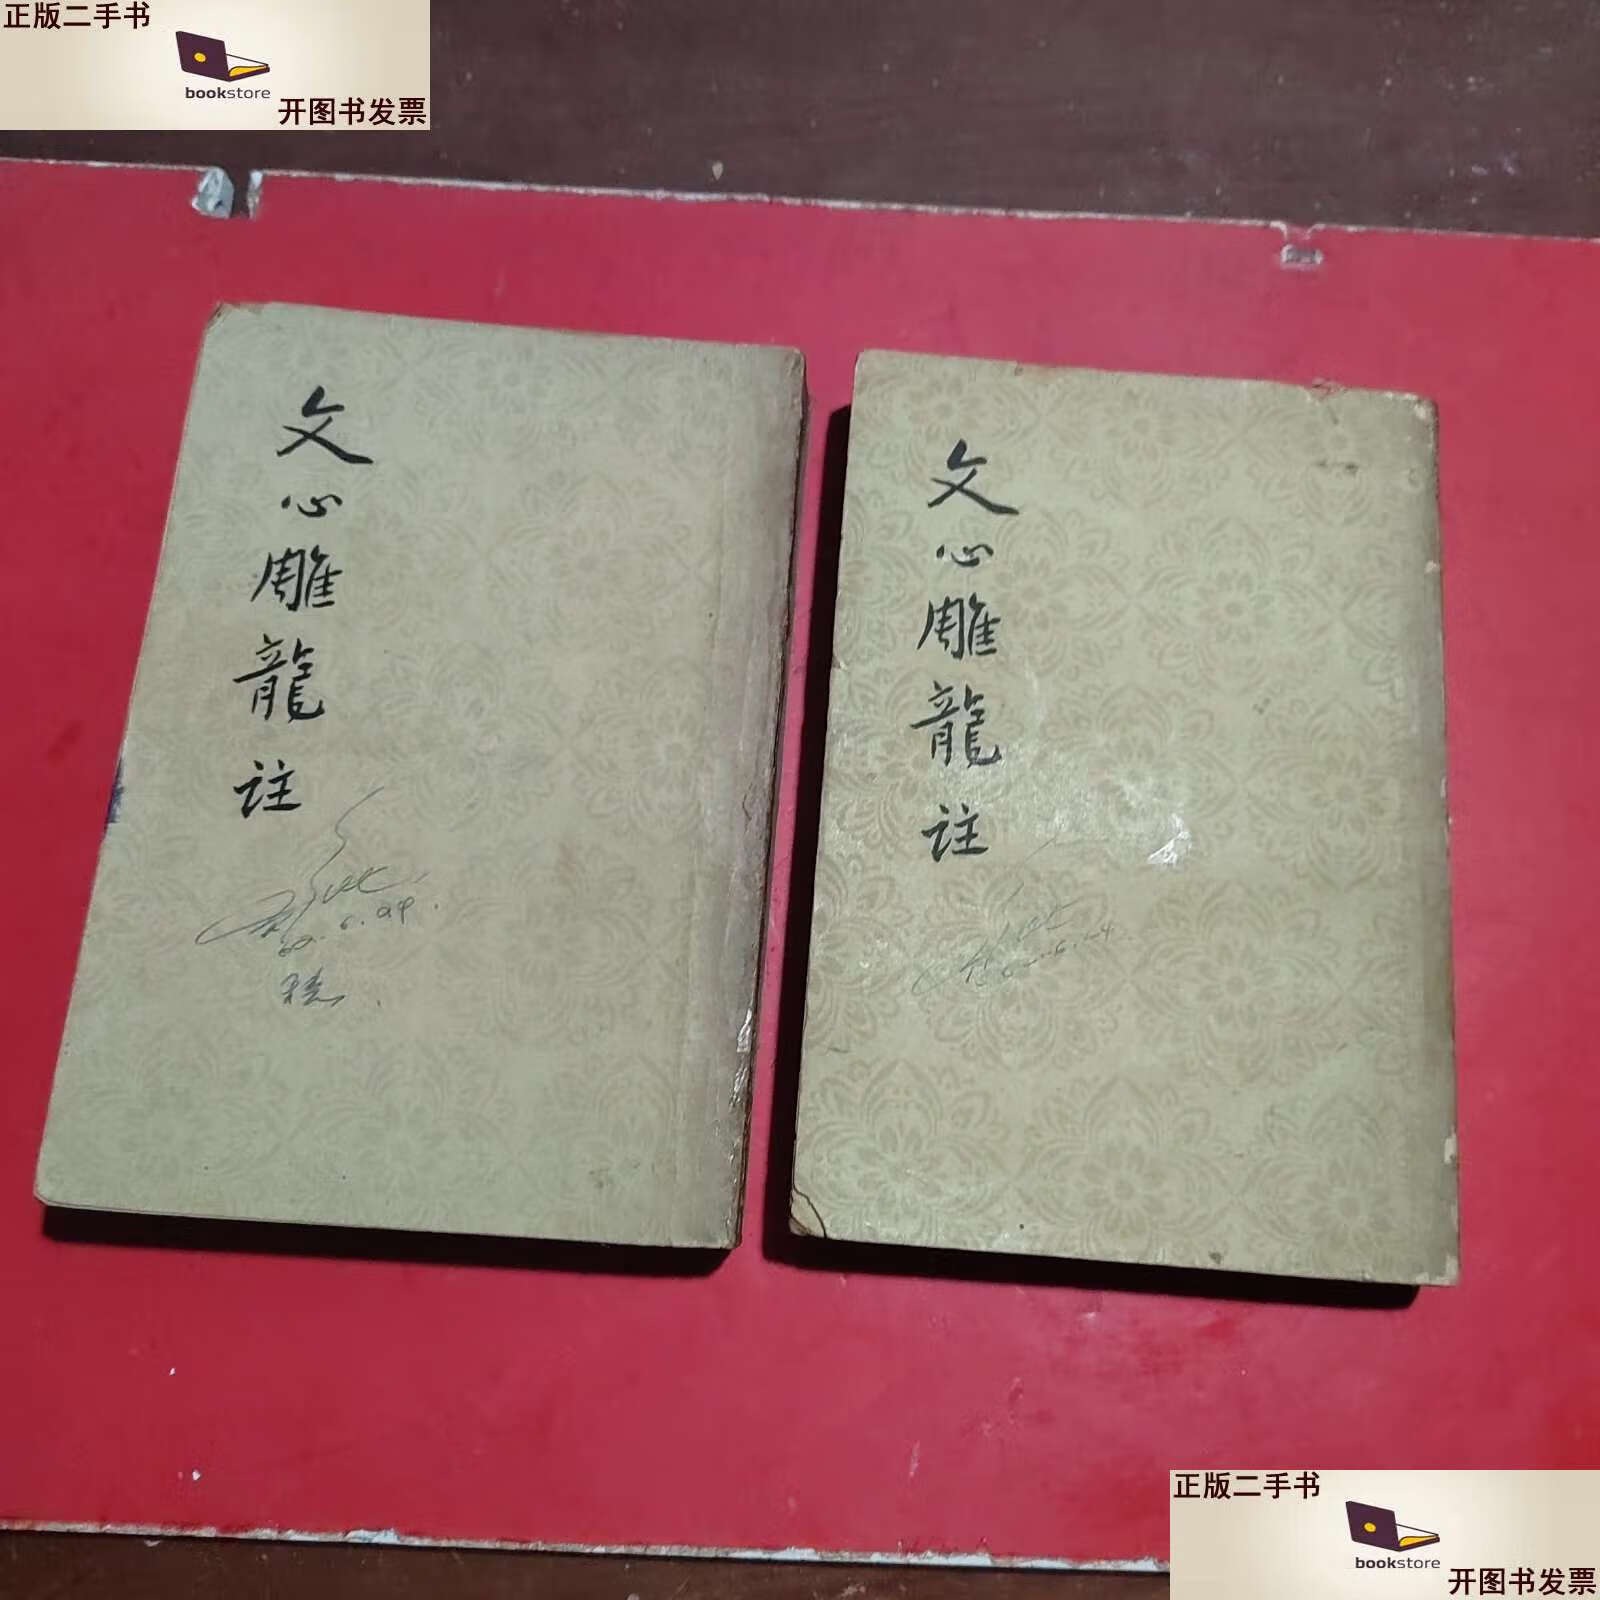 正版二手书
bookstore
开图书发票
文心雕龍註
文心雕龍註
正版二手书
bookstore
开图书发票